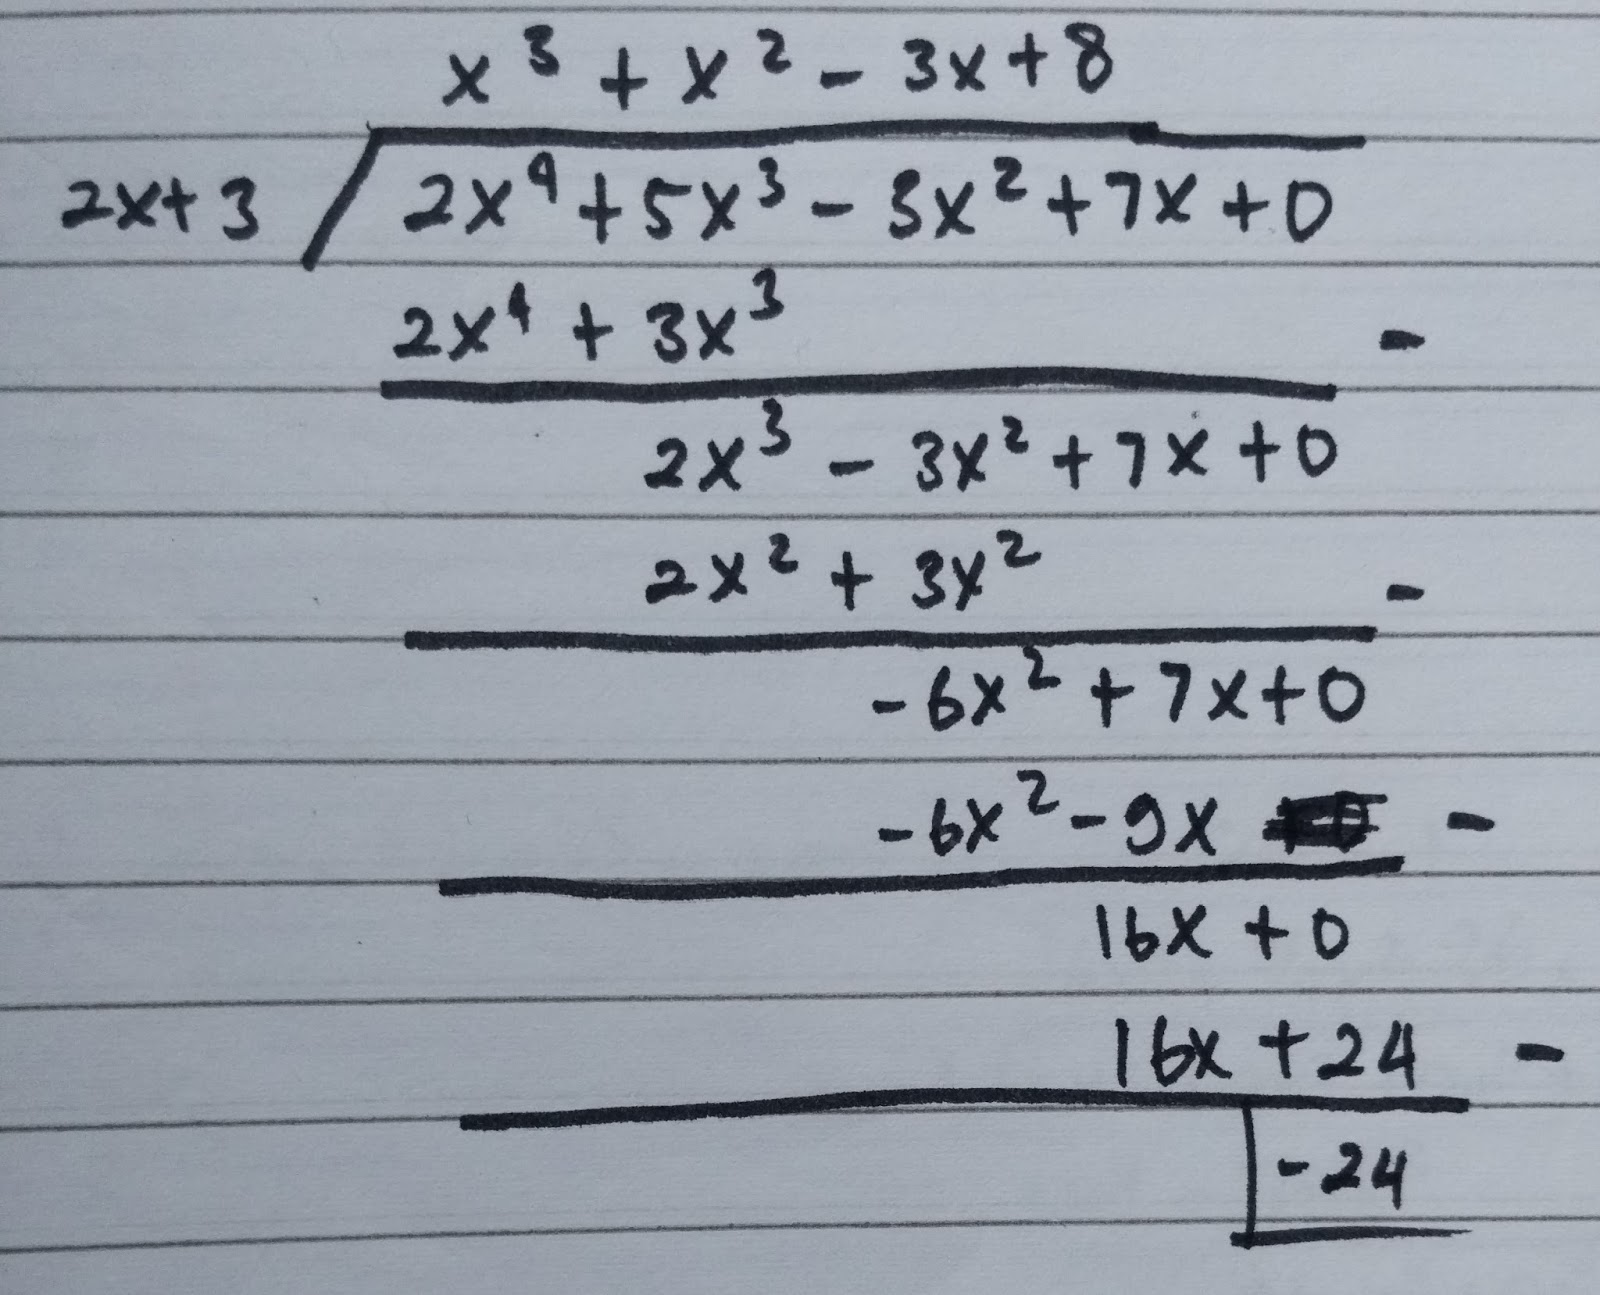 x³ + x² - 3x + 8
2x+3 / 2x⁴ + 5x³ - 3x² + 7x + 0
2x⁴ + 3x³ -
2x³ - 3x² + 7x + 0
2x² + 3x² -
-6x² + 7x + 0
-6x² - 9x -
16x + 0
16x + 24 -
-24